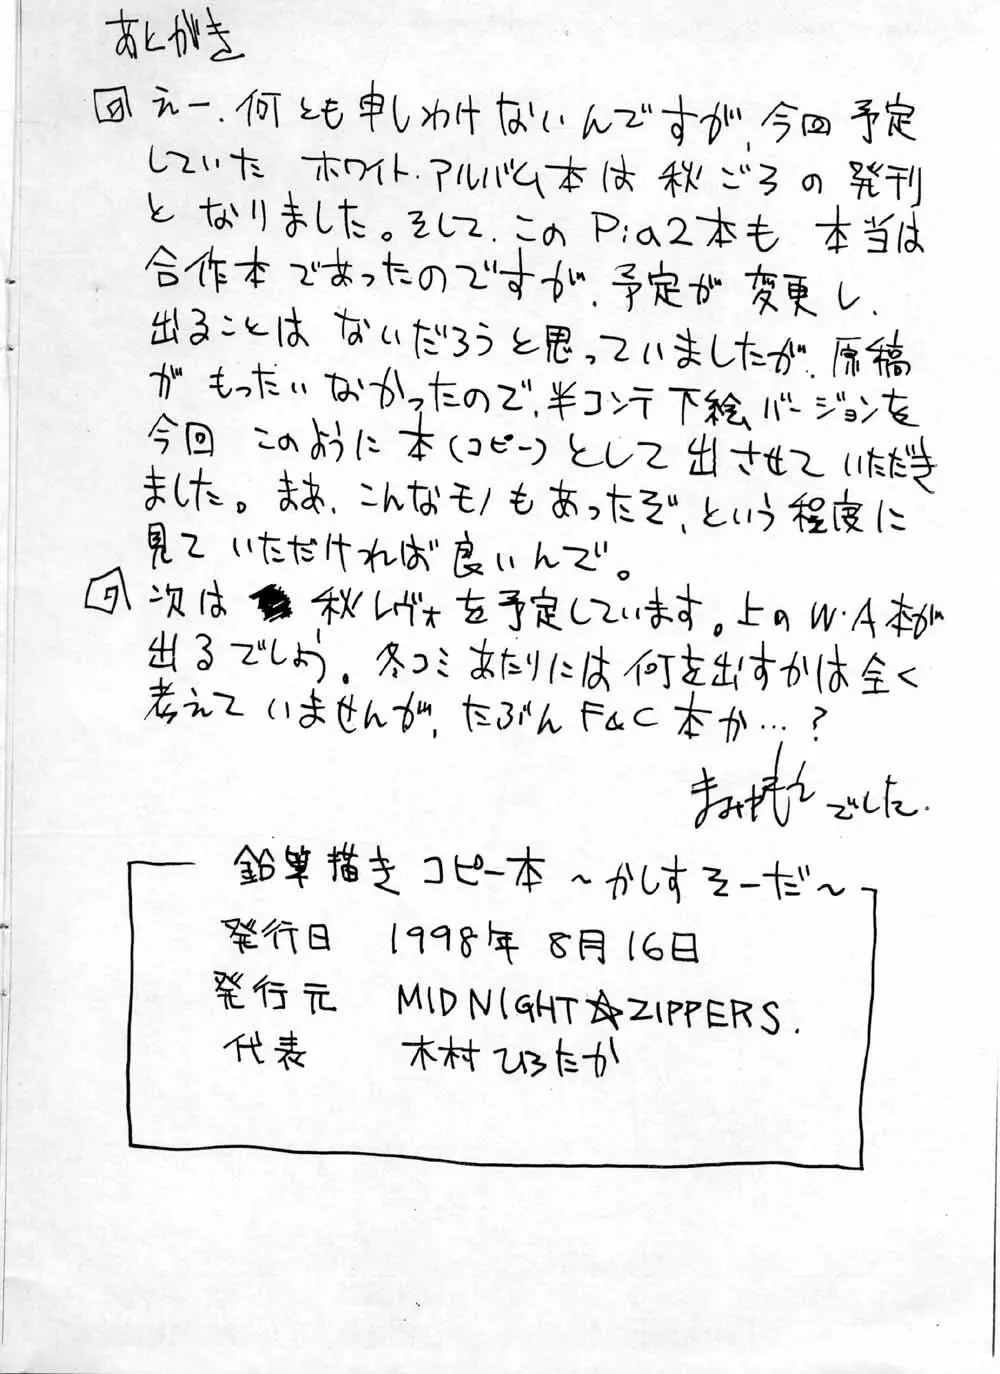 あとがき
えー、何とも申しわけないんですが、今回予定
していた ホワイト・アルバム本は 秋ごろの発刊
となりました。そして、このPia2本も 本当は
合作本であったのですが、予定が変更し、
出ることは ないだろうと思っていましたが、原稿
が もったいなかったので、半コンテ下絵バージョンを
今回 このように本(コピー)として出させていただき
ました。まあ、こんなモノもあったぞ、という程度に
見て いただければ良いんで。
次は 秋レヴォを予定しています。上のW・A本が
出るでしょう。冬コミあたりには何を出すかは全く
考えていませんが、たぶんF&C本か…?
でした。
鉛筆描きコピー本 〜かしすそーだ〜
発行日 1998年8月16日
発行元 MIDNIGHT☆ZIPPERS.
代表 木村ひろたか